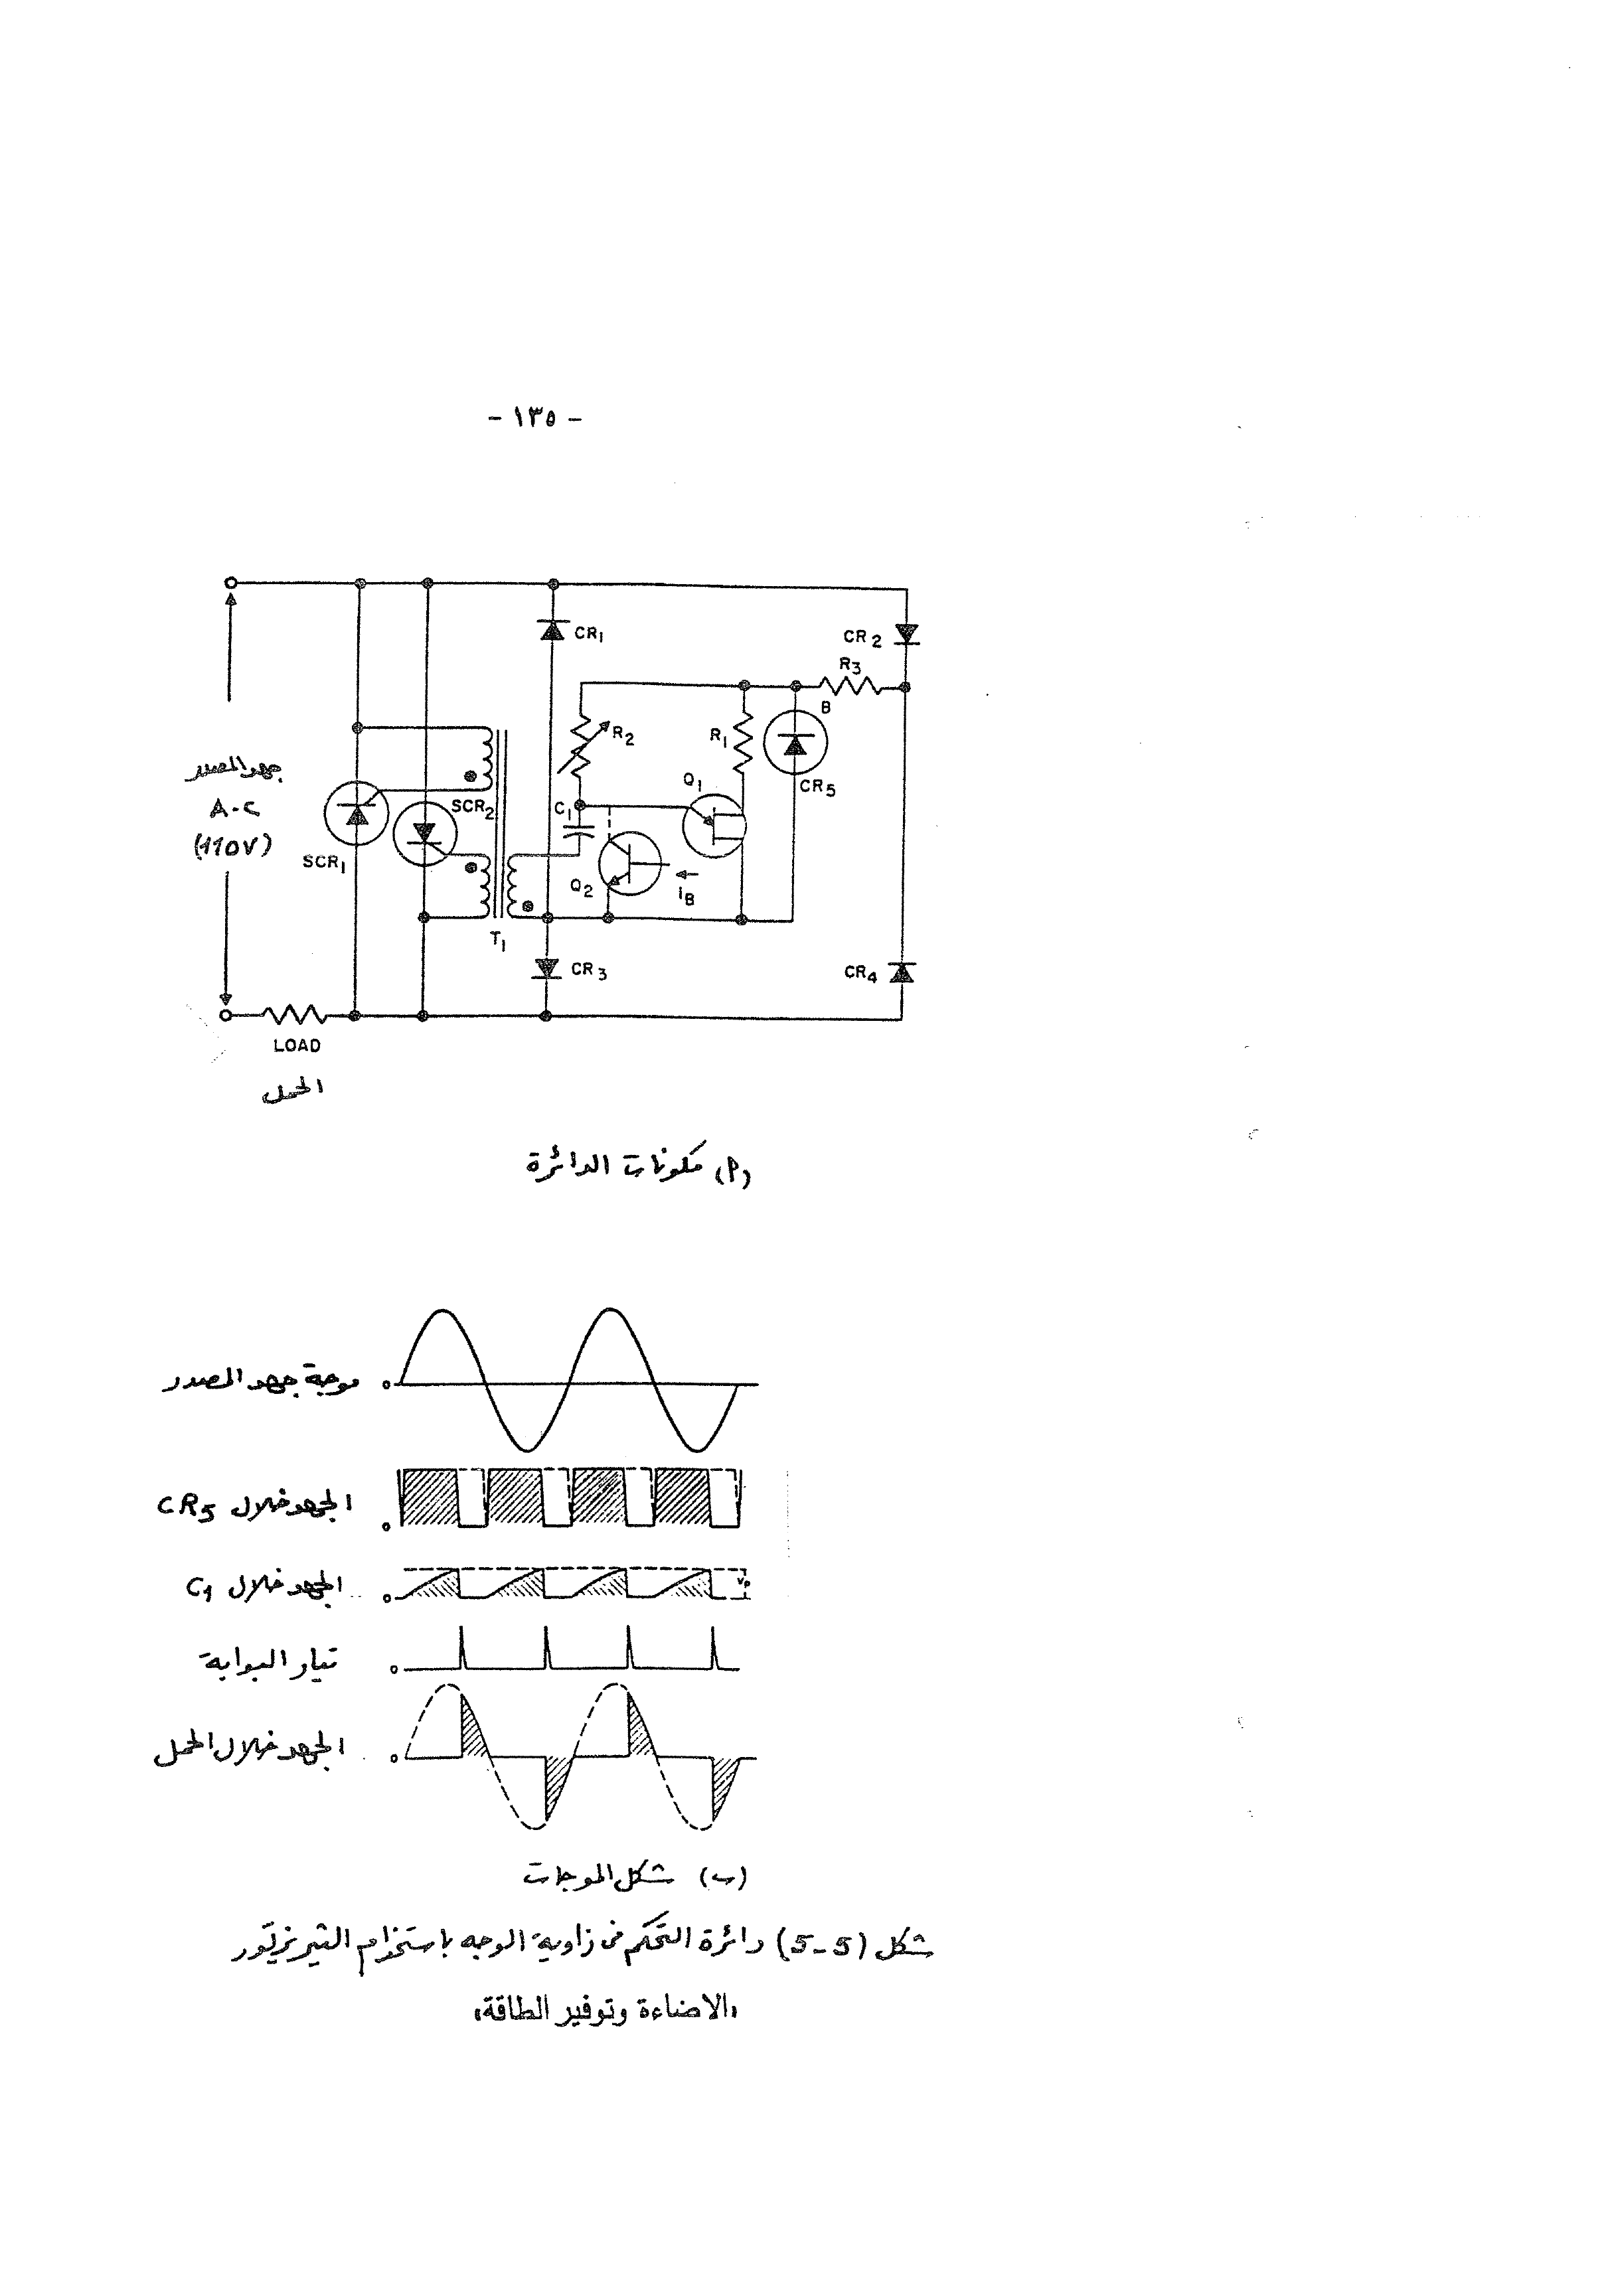 - ١٣٥ -
CR1
CR 2
R3
B
R2
R1
CR5
Q1
جهد المصدر
A-C
(110V)
SCR2
C1
SCR1
Q2
IB
T1
CR 3
CR4
LOAD
الحمل
(أ) مكونات الدائرة
موجة جهد المصدر
0
الجهد خلال CR5
0
الجهد خلال C1
0
Vp
تيار البوابة
0
الجهد خلال الحمل
0
(ب) شكل الموجات
شكل (5-5) دائرة التحكم فى زاوية الوجه باستخدام الثيرزتور
،الاضاءة وتوفير الطاقة،